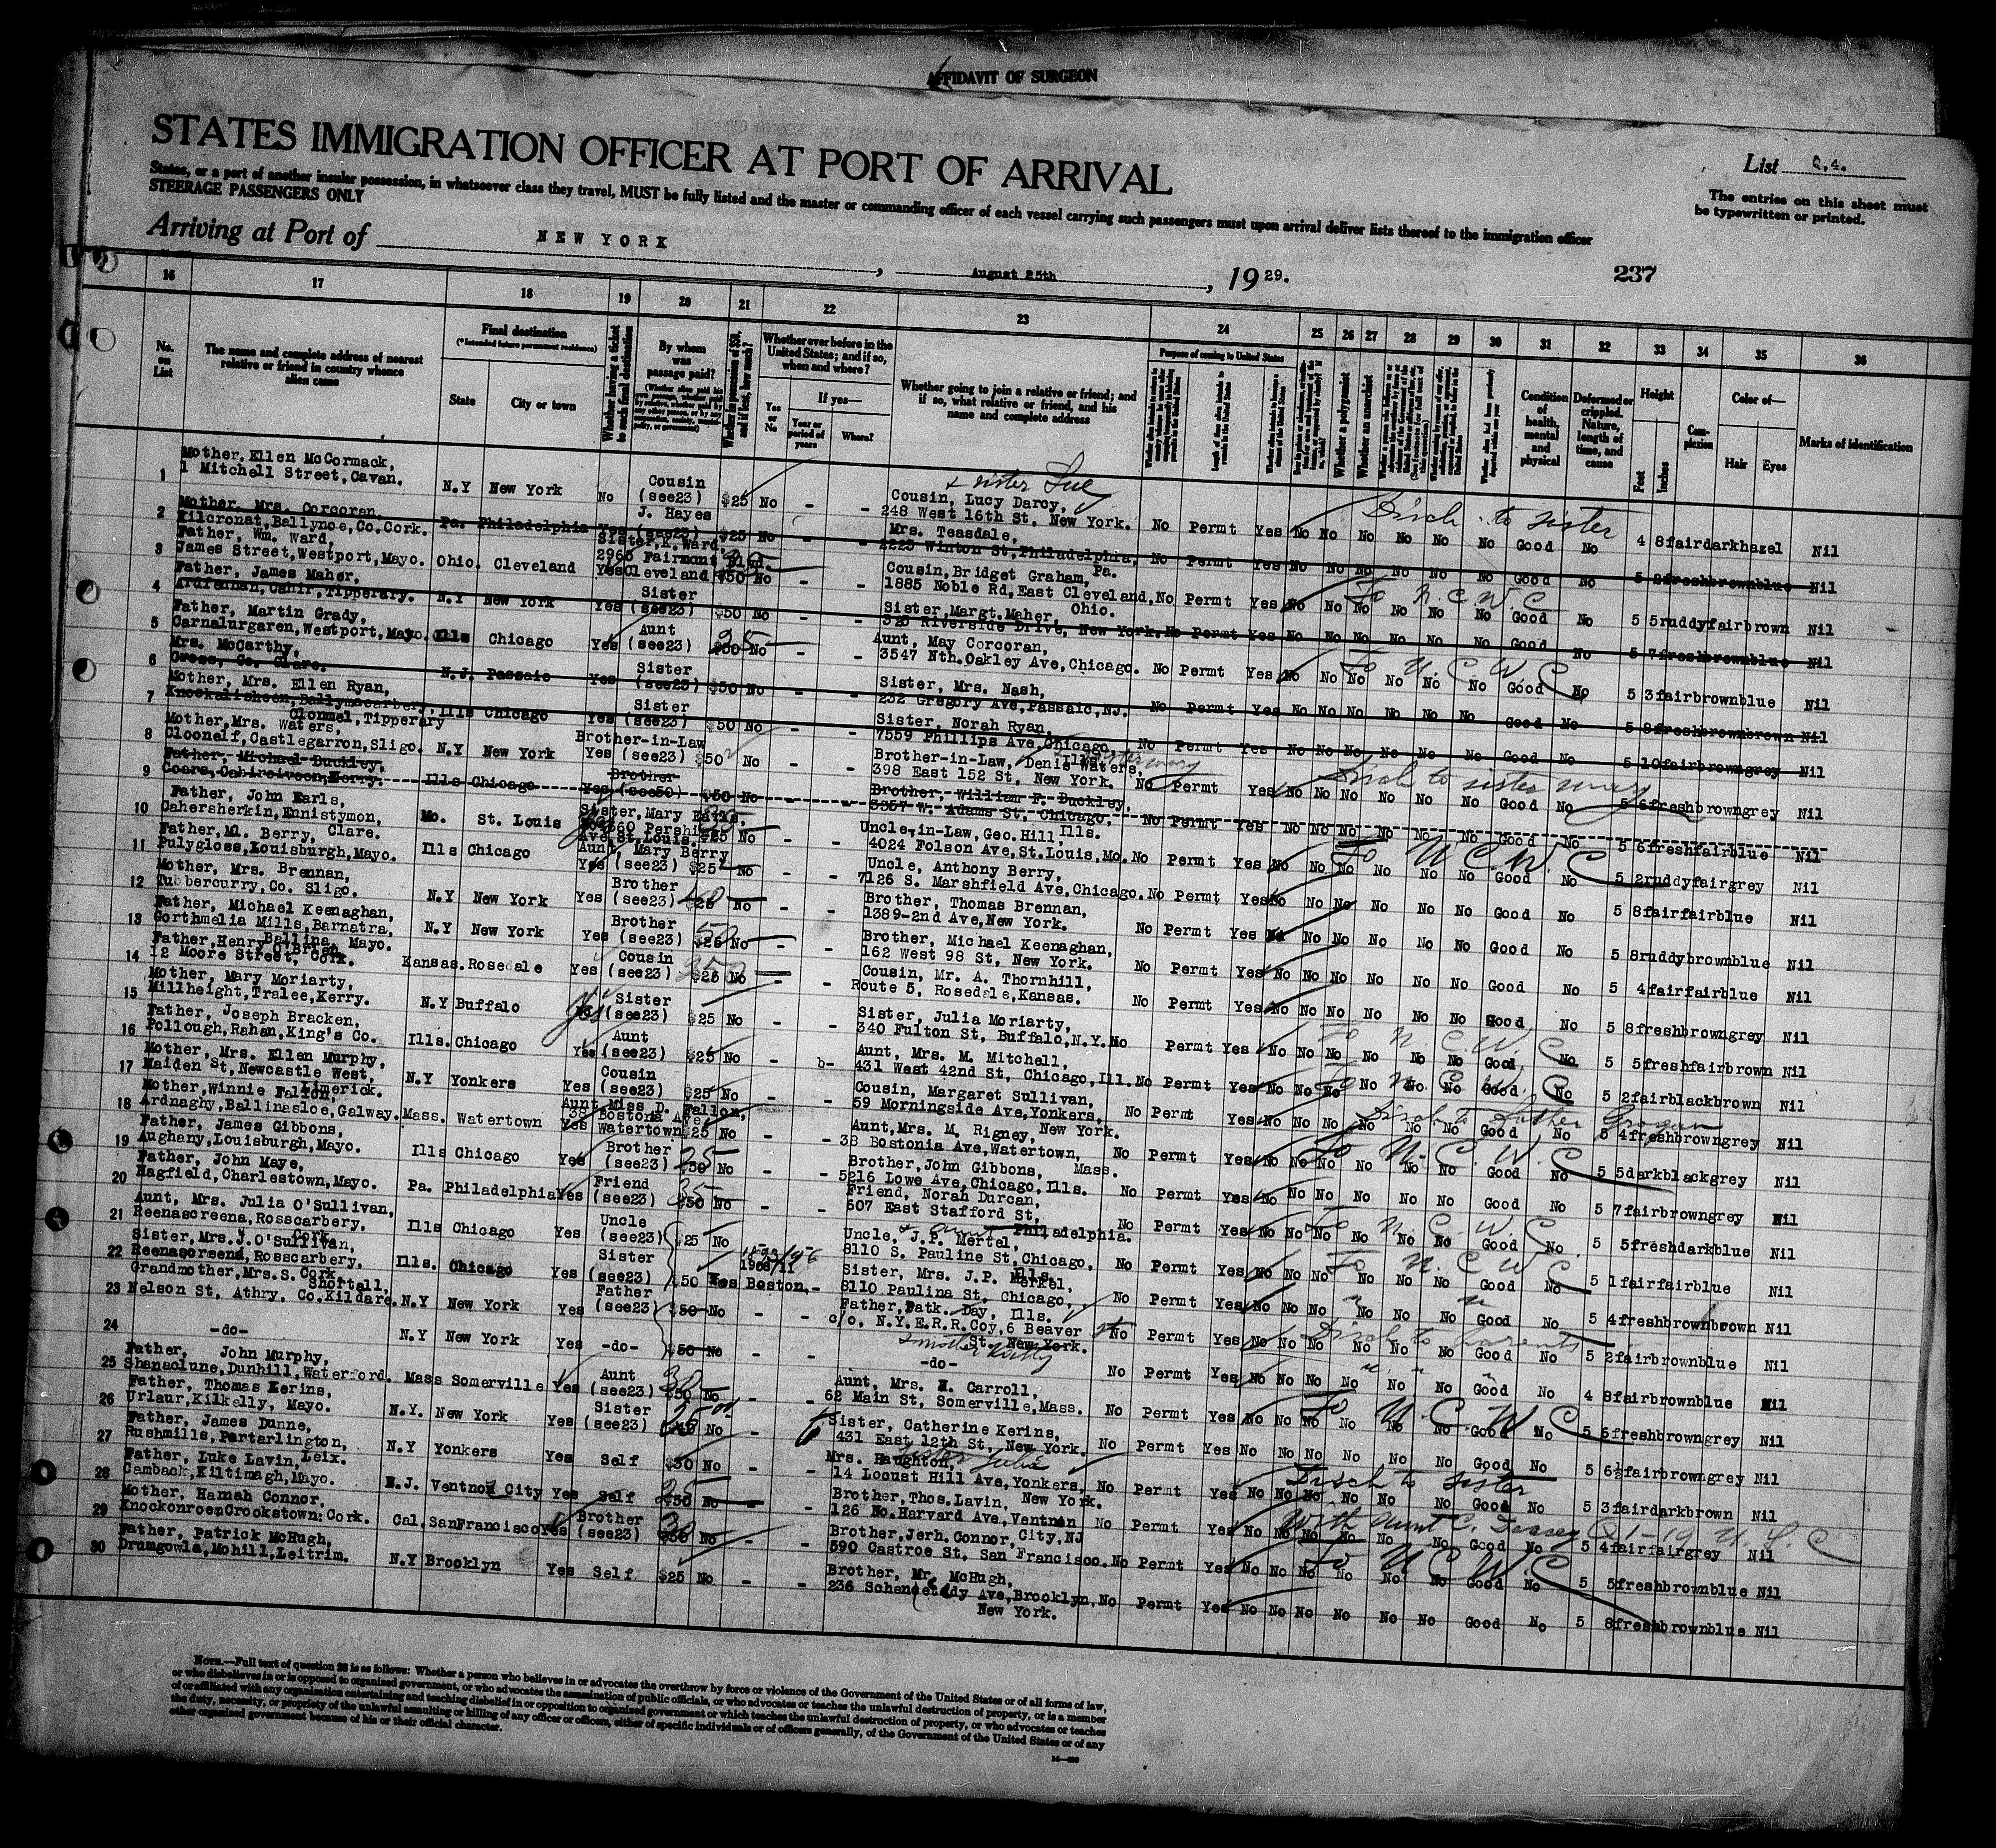 AFFIDAVIT OF SURGEON
STATES IMMIGRATION OFFICER AT PORT OF ARRIVAL
List Q.4.
States, or a port of another insular possession, in whatsoever class they travel, MUST be fully listed and the master or commanding officer of each vessel carrying such passengers must upon arrival deliver lists thereof to the immigration officer
STEERAGE PASSENGERS ONLY
The entries on this sheet must
be typewritten or printed.
Arriving at Port of NEW YORK, August 25th, 1929.
237
16 17 18 19 20 21 22 23 24 25 26 27 28 29 30 31 32 33 34 35 36
No. on List
The name and complete address of nearest relative or friend in country whence alien came
Final destination
(*Intended future permanent residence)
State
City or town
Whether having a ticket to such final destination
By whom was passage paid?
Whether in possession of $50, and if less, how much?
Whether ever before in the United States; and if so, when and where?
Yes or No
If yes—
Year or period of years
Where?
Whether going to join a relative or friend; and if so, what relative or friend, and his name and complete address
Purpose of coming to United States
Whether a polygamist
Whether an anarchist
Condition of health, mental and physical
Deformed or crippled. Nature, length of time, and cause
Height
Feet
Inches
Complexion
Color of—
Hair
Eyes
Marks of identification
1 Mother, Ellen McCormack, 1 Mitchell Street, Cavan. N.Y New York No Cousin (see23) $25 No - - Cousin, Lucy Darcy, 248 West 16th St, New York. No Permt Yes No No No No No No Good No 4 8 fair dark hazel Nil
+ sister Sue
Disch. to sister
2 Mother, Mrs. Corcoran, Kilcronat, Ballynoe, Co. Cork. Pa. Philadelphia Yes J. Hayes (see23) $25 No - - Mrs. Teasdale, 2223 Winton St, Philadelphia, Pa. No Permt Yes No No No No No No Good No 5 fresh brown blue Nil
3 Father, Wm. Ward, James Street, Westport, Mayo. Ohio. Cleveland Yes Sister, K. Ward, 2965 Fairmont Blvd. Cleveland $50 No - - Cousin, Bridget Graham, 1885 Noble Rd, East Cleveland, Ohio. No Permt Yes No No No No No No Good No 5 5 ruddy fair brown Nil
To N.C.W.C
4 Father, James Maher, Ardfinnan, Cahir, Tipperary. N.Y New York Yes Sister (see23) $50 No - - Sister, Margt. Maher, 320 Riverside Drive, New York. No Permt Yes No No No No No No Good No 5 7 fresh brown blue Nil
5 Father, Martin Grady, Carnalurgaren, Westport, Mayo. Ills Chicago Yes Aunt (see23) $50 No - - Aunt, May Corcoran, 3547 Nth. Oakley Ave, Chicago. No Permt Yes No No No No No No Good No 5 3 fair brown blue Nil
25
To N.C.W.C
6 Mrs. McCarthy, Cross, Co. Clare. N.J. Passaic Yes Sister (see23) $50 No - - Sister, Mrs. Nash, 232 Gregory Ave, Passaic, NJ. No Permt Yes No No No No No No Good No 5 8 fresh brown brown Nil
7 Mother, Mrs. Ellen Ryan, Knockalisheen, Ballymacarbery, Clonmel, Tipperary Ills Chicago Yes Sister (see23) $50 No - - Sister, Norah Ryan, 7559 Phillips Ave, Chicago, Ills. No Permt Yes No No No No No No Good No 5 10 fair brown grey Nil
8 Mother, Mrs. Waters, Cloonelf, Castlegarron, Sligo. N.Y New York Yes Brother-in-Law (see23) $50 No - - Brother-in-Law, Denis Waters, 398 East 152 St. New York. No Permt Yes No No No No No No Good No 5 6 fresh brown grey Nil
Disch to sister mary
9 Father, Michael Buckley, Coars, Cahirsiveen, Kerry. Ills Chicago Yes Brother (see50) $50 No - - Brother, William F. Buckley, 3357 W. Adams St. Chicago, Ills. No Permt Yes No No No No No No
10 Father, John Earls, Cahersherkin, Ennistymon, Clare. Mo. St. Louis Sister, Mary Earls. Ave, St. Louis. $25 No - - Uncle-in-Law, Geo. Hill, 4024 Folson Ave, St. Louis, Mo. No Permt Yes No No No No No No Good No 5 6 fresh fair blue Nil
To N.C.W.C
11 Father, M. Berry, Pulygloss, Louisburgh, Mayo. Ills Chicago Yes Aunt, Mary Berry (see23) $25 No - - Uncle, Anthony Berry, 7126 S. Marshfield Ave, Chicago. No Permt Yes No No No No No No Good No 5 2 ruddy fair grey Nil
12 Mother, Mrs. Brennan, Tubbercurry, Co. Sligo. N.Y New York Yes Brother (see23) $25 No - - Brother, Thomas Brennan, 1389-2nd Ave, New York. No Permt Yes No No No No No No Good No 5 8 fair fair blue Nil
13 Father, Michael Keenaghan, Gorthmelia Mills, Barnatra, Ballina, Mayo. N.Y New York Yes Brother (see23) $25 No - - Brother, Michael Keenaghan, 162 West 98 St, New York. No Permt Yes No No No No No No Good No 5 8 ruddy brown blue Nil
50
14 Father, Henry O'Brien, 12 Moore Street, Cork. Kansas. Rosedale Yes Cousin (see23) $25 No - - Cousin, Mr. A. Thornhill, Route 5, Rosedale, Kansas. No Permt Yes No No No No No No Good No 5 4 fair fair blue Nil
15 Mother, Mary Moriarty, Millheight, Tralee, Kerry. N.Y Buffalo Yes Sister (see23) $25 No - - Sister, Julia Moriarty, 340 Fulton St, Buffalo, N.Y. No Permt Yes No No No No No No Good No 5 8 fresh brown grey Nil
To N.C.W.C
16 Father, Joseph Bracken, Pollough, Rahan, King's Co. Ills. Chicago Yes Aunt (see23) $25 No - b- Aunt, Mrs. M. Mitchell, 431 West 42nd St, Chicago, Ill. No Permt Yes No No No No No No Good No 5 5 fresh fair brown Nil
To N.C.W.C
17 Mother, Mrs. Ellen Murphy, Maiden St, Newcastle West, Limerick. N.Y Yonkers Yes Cousin (see23) $25 No - - Cousin, Margaret Sullivan, 59 Morningside Ave, Yonkers, New York. No Permt Yes No No No No No No Good No 5 2 fair black brown Nil
18 Mother, Winnie Fallon, Ardnaghy, Ballinasloe, Galway. Mass. Watertown Yes Aunt Miss D. Fallon, 38 Bostona Ave, Watertown $25 No - - Aunt, Mrs. M. Rigney, 38 Bostonia Ave, Watertown, Mass. No Permt Yes No No No No No No Good No 5 4 fresh brown grey Nil
19 Father, James Gibbons, Aughany, Louisburgh, Mayo. Ills Chicago Yes Brother (see23) $50 No - - Brother, John Gibbons, 5216 Lowe Ave, Chicago, Ills. No Permt Yes No No No No No No Good No 5 5 dark black grey Nil
25
To N.C.W.C
20 Father, John Maye, Hagfield, Charlestown, Mayo. Pa. Philadelphia Yes Friend (see23) $50 No - - Friend, Norah Durcan, 607 East Stafford St, Philadelphia. No Permt Yes No No No No No No Good No 5 7 fair brown grey Nil
21 Aunt, Mrs. Julia O'Sullivan, Reenascreena, Rosscarbery, Cork. Ills Chicago Yes Uncle (see23) $25 No - - Uncle, J.P. Mertel, 8110 S. Pauline St, Chicago, Ills. No Permt Yes No No No No No No Good No 5 5 fresh dark blue Nil
+ aunt
To N.C.W.C
22 Sister, Mrs. J. O'Sullivan, Reenascreena, Rosscarbery, Cork. Ills. Chicago Yes Sister (see23) $50 Yes 1908/11 Boston. - Sister, Mrs. J.P. Merkel, 8110 Paulina St. Chicago, Ills. No Permt Yes No No No No No No Good No 5 1 fair fair blue Nil
To N.C.W.C
23 Grandmother, Mrs. S. Shortall, Nelson St, Athry, Co. Kildare. N.Y New York Yes Father (see23) $50 No - - Father, Patk. Day, c/o, N.Y.E.R.R. Coy, 6 Beaver St. New York. No Permt Yes No No No No No No Good No 5 4 fresh brown brown Nil
24 -do- N.Y New York Yes -do- $50 No - - -do- No Permt Yes No No No No No No Good No 5 2 fair brown blue Nil
Disch to Parents
25 Father, John Murphy, Shanaclune, Dunhill, Waterford. Mass Somerville Yes Aunt (see23) $50 No - - Aunt, Mrs. H. Carroll, 62 Main St, Somerville, Mass. No Permt Yes No No No No No No Good No 4 8 fair brown blue Nil
26 Father, Thomas Kerins, Urlaur, Kilkelly, Mayo. N.Y. New York Yes Sister (see23) No - Sister, Catherine Kerins, 431 East 12th St, New York. No Permt Yes No No No No No No Good No 5 6 fresh brown grey Nil
To N.C.W.C
27 Father, James Dunne, Rushmills, Partarlington, Leix. N.Y Yonkers Yes Self $30 No - - Mrs. Haughton, 14 Locust Hill Ave, Yonkers, New York. No Permt Yes No No No No No No Good No 5 6½ fair brown grey Nil
sister Julia
Disch to sister
28 Father, Luke Lavin, Camback, Kiltimagh, Mayo. N.J. Ventnor City Yes Self $50 No - - Brother, Thos. Lavin, 126 No. Harvard Ave, Ventnan City, NJ No Permt Yes No No No No No No Good No 5 3 fair dark brown Nil
25
29 Mother, Hannah Connor, Knockonroen Crookstown: Cork. Cal. San Francisco Yes Brother (see23) No - - Brother, Jerh. Connor, 590 Castroe St, San Francisco. No Permt Yes No No No No No No Good No 5 4 fair fair grey Nil
With Aunt C.
To N.C.W.C
30 Father, Patrick McHugh, Drumgowla, Mohill, Leitrim. N.Y Brooklyn Yes Self $25 No - - Brother, Mr. McHugh, 236 Schenectady Ave, Brooklyn, New York. No Permt Yes No No No No No No Good No 5 8 fresh brown blue Nil
NOTE.—Full text of question 28 is as follows: Whether a person who believes in or advocates the overthrow by force or violence of the Government of the United States or of all forms of law,
or who disbelieves in or is opposed to organized government, or who advocates the assassination of public officials, or who advocates or teaches the unlawful destruction of property, or is a member
of or affiliated with any organization entertaining and teaching disbelief in or opposition to organized government or which teaches the unlawful destruction of property, or who advocates or teaches
the duty, necessity, or propriety of the unlawful assaulting or killing of any officer or officers, either of specific individuals or of officers generally, of the Government of the United States or of any
other organized government because of his or their official character.